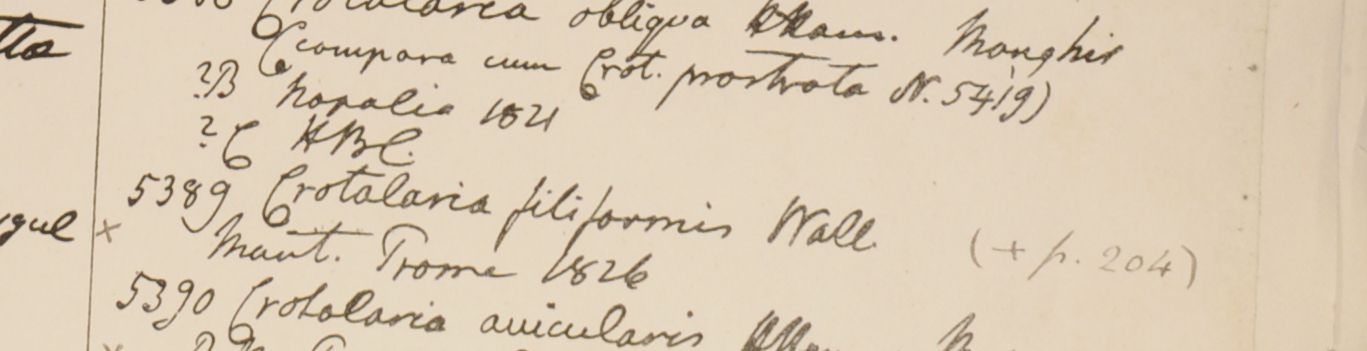 Crotalaria obliqua HHam. Monghir
(compara cum Crot. prostrata N. 5419)
?B Napalia 1821
?C HBC.
5389 Crotalaria filiformis Wall. (+ p. 204)
x Mant. Prome 1826
5390 Crotalaria avicularis